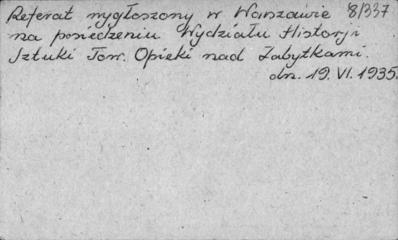 Referat wygłoszony w Warszawie 8/337
na posiedzeniu Wydziału Historji
Sztuki Tow. Opieki nad Zabytkami.
dn. 19. VI. 1935.